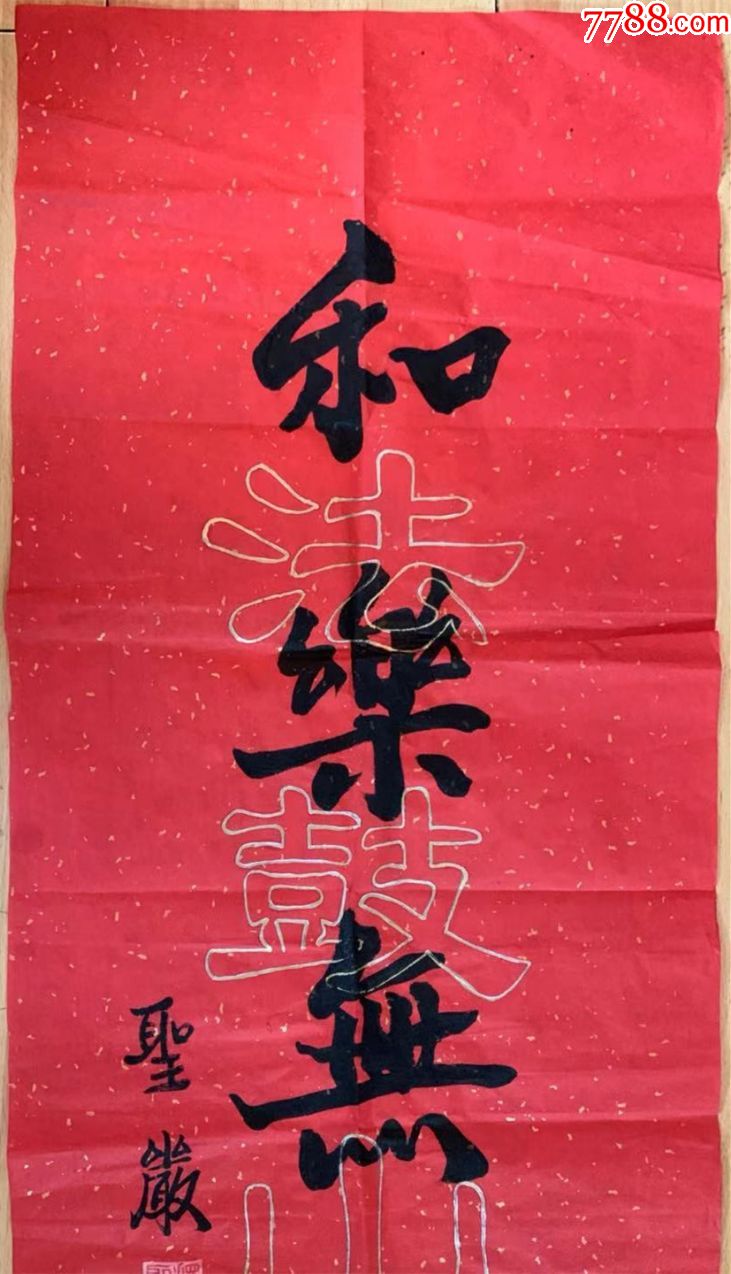 7788.com
和樂無
法鼓山
聖嚴